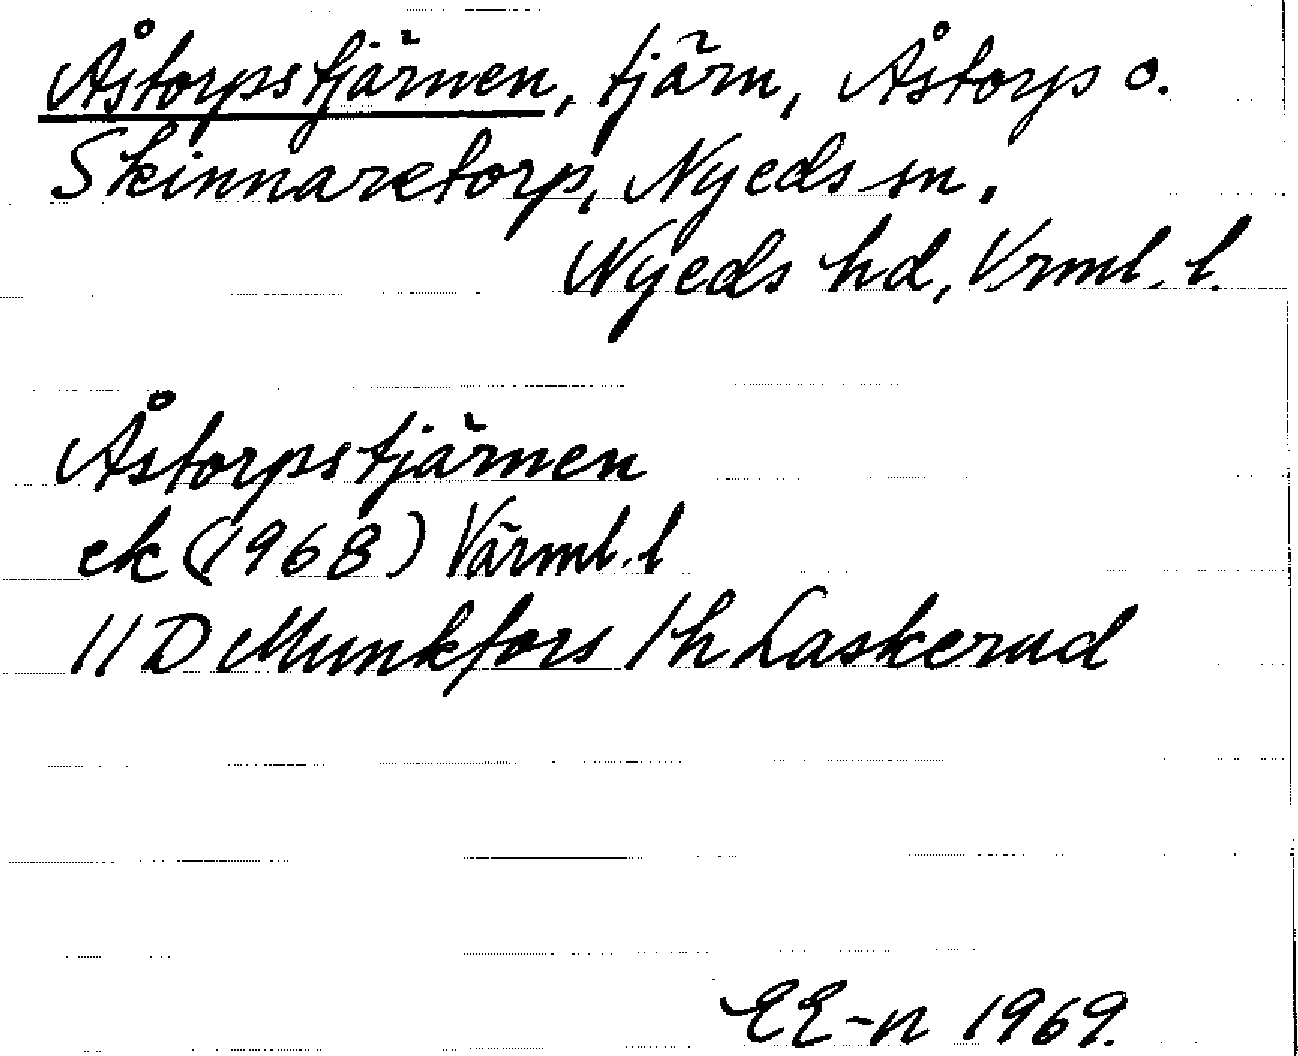 Åstorpstjärnen, tjärn, Åstorp o.
Skinnaretorp, Nyeds sn.
Nyeds hd, Vrml. l.
Åstorpstjärnen
ek (1968) Värml. l
11 D Munkfors 1h Laskerud
EE-n 1969.